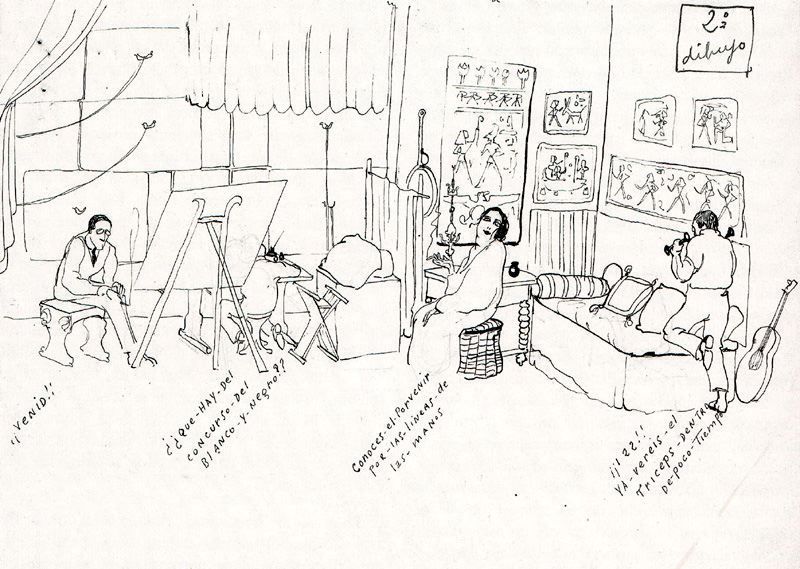 2º
dibujo
¡¡VENID!!
¿¿QUE-HAY-DEl
CONCURSO-DEl
BlANCO-Y-NEGRO??
CONOCES-El-PORVENIR
POR-lAS-LINEAS-de
-las-MANOS
¡¡¡122!!
YA-VEREIS-el
TRICEPS-DENTRO
DE-POCO-TIEMPO